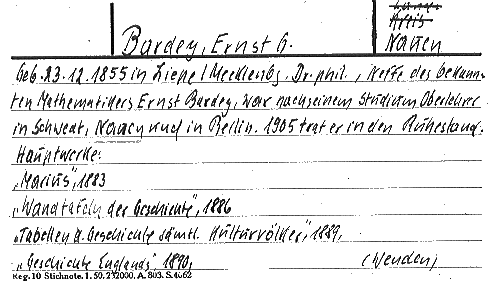 Land:
Kreis
Bardey, Ernst G.
Nauen
Geb. 23.12.1855 in Liepe / Mecklenbg. Dr. phil., Neffe des bekann-
ten Mathematikers Ernst Bardey, war nach seinem Studium Oberlehrer
in Schwedt, Nauen und in Berlin. 1905 trat er in den Ruhestand.
Hauptwerke:
„Marius", 1883
„Wandtafeln der Geschichte", 1886
„Tabellen d. Geschichte sämtl. Kulturvölker", 1889,
„Geschichte Englands", 1890,
(Wenden)
Reg. 10 Stichnote. 1. 50. 2000. A. 803. S. 4062